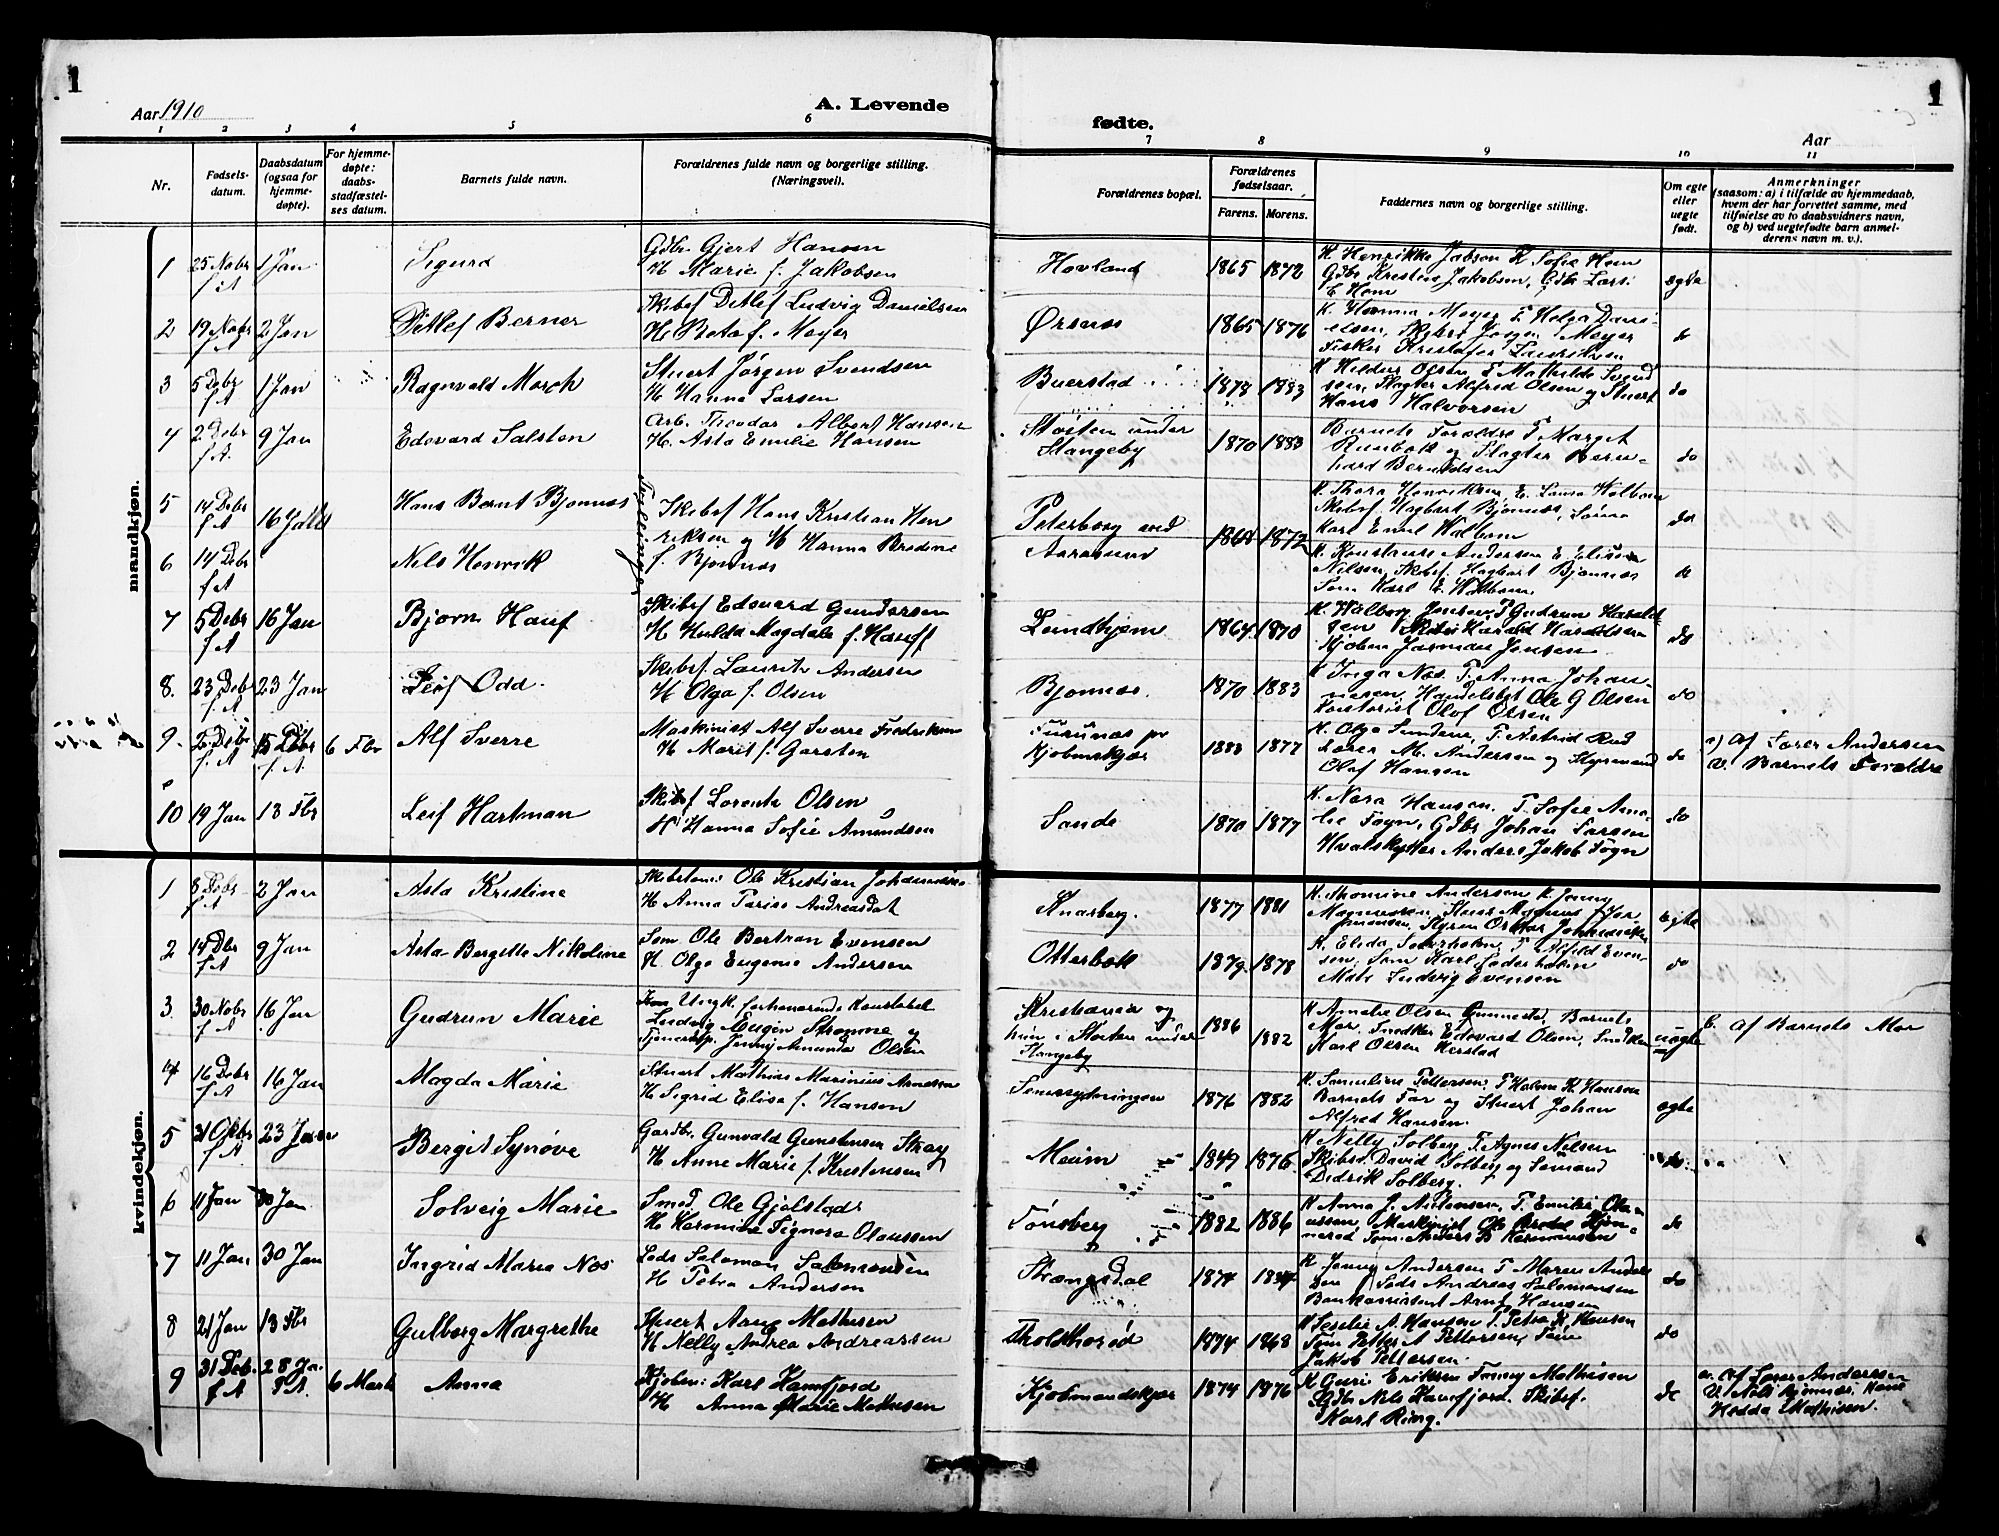 1
1
Aar 1910
A. Levende
fødte.
Aar
1 2 3 4 5 6 7 8 9 10 11
Nr.
Fødsels-
datum.
Daabsdatum
(ogsaa for
hjemme-
døpte).
For hjemme-
døpte:
daabs-
stadfæstel-
ses datum.
Barnets fulde navn.
Forældrenes fulde navn og borgerlige stilling.
(Næringsvei).
Forældrenes bopæl.
Forældrenes
fødselsaar.
Farens. Morens.
Faddernes navn og borgerlige stilling.
Om egte
eller
uegte
født.
Anmerkninger
(saasom: a) i tilfælde av hjemmedaab,
hvem der har forrettet samme, med
tilføielse av to daabsvidners navn,
og b) ved uegtefødte barn anmel-
derens navn m. v.).
mandkjøn.
1 25 Nobr f A 1 Jan Sigurd
Gdbr. Gjert Hansen
H Marie f. Jakobsen
Hovland 1865 1872
K Henrikke Jakson K Sofie Hem
Gdbr Kristen Jakobsen, Gdbr Lars
E Hem
egte
2 19 Nobr f A 2 Jan Ditlef Berner
Skibsf Ditlef Ludvig Danielsen
H Beta f. Meyer
Ørsnes 1865 1876
K. Hanna Meyer F Helga Dani-
elsen, Skibsf Jørgen Meyer
Fisker Kristofer Lauritsen
do
3 5 Debr f A 1 Jan Ragnvald Morch
Stuert Jørgen Svendsen
H Hanna Larsen
Buerstad 1878 1883
K Hildur Olsen F Mathilde Svend
sen, Slagter Alfred Olsen og Stuert
Hans Halvorsen
do
4 2 Debr f A. 9 Jan Edevard Salsten
Arb. Theodor Albert Hansen
H. Asta Emilie Hansen
Stosten under
Stangeby
1870 1883
Barnets Forældre F Marget
og Slagter Bern-
hard Berntdsen
do
5 14 Debr f A 16 Jan Hans Bernt Bjønnes
6 14 Debr f A Nils Henrik
Tvillinger
Skibsf Hans Kristian Hen
riksen og H Hanna Bredine
f. Bjønnes
Peterborg ved
Aarøsund
1864 1872
K. Thora Henriksen, E. Laura Walbom
Skibsf. Hagbart Bjønnes, Sømn
Karl Emil Walbom
do
K. Konstanse Andersen E. Elise
Nilsen, Skibsf. Hagbart Bjønnes
Søm Karl E. Walbom
do
7 5 Debr f A 16 Jan Bjørn Hauf
Skibsf Edevard Gundersen
H Hulda Magdale f. Hauff
Lundhjem 1864 1870
K. Walborg Jensen F Gudrun Harald-
sen Harald Haraldsen
Kjøbm Jørman Jensen
do
8. 23 Debr f. A 23 Jan Leif Odd.
Skibsf. Lauritz Andersen
H Olga f. Olsen
Bjønnes. 1870 1883
K Inga Nes. F. Anna Johan-
nesen, Handelsbet Ole G Olsen
Kontorist Olof Olsen
do
9. 2 Debr f. A 15 Debr f. A 6 Fbr Alf Sverre
Maskinist Alf Sverre Fredriksen
H. Marit f. Garsten
Furunes pr
Kjøbmskjær
1883 1877
K. Olga Sundene, F. Astrid Rud
Lærer M. Andersen og Styrmand
Olaf Hansen
do
a) Af Lærer Andersen
V. Barnets Forældre
10 19 Jan 13 Fbr Leif Hartman
Skibsf Lorentz Olsen
H Hanna Sofie Amundsen
Sande 1870 1877
K. Nora Hansen. F. Sofie Ama-
lie Fogn, Gdbr Johan Larsen
Hvalskytter Anders Jakob Fogn
do
kvindekjøn.
1 8 Debr f A 2 Jan Asta Kristine
Skibstøm: Ole Kristian Johannesen
H Anna Parise Andreasdat
Knarberg. 1877 1881
K. Thomine Andersen K. Jenny
Magnussen, Stuer Magnus Jør
gensen, Styrm Oskar Johannesen
egte
2 14 Dbr f A 9 Jan Asta Bergitte Nikoline
Søm Ole Bertran Evensen
H. Olga Eugenie Andersen
Otterbæk 1879 1878
K. Elida Søderholm, F. Alfild Even-
sen, Søm Karl Søderholm
Mats Ludvig Evensen
do
3. 30 Nobr f A 16 Jan Gudrun Marie
Ungk. forhenværende Konstabel
Ludvig Eugen Strømme og
Tjenestep. Jenny Amunda Olsen
Kristiania og
hun i Stosten under
Stangeby
1886 1882
K Amalie Olsen Gunnestad, Barnets
Mor, Snedker Edevard Olsen, Snedker
Karl Olsen Herstad
uegte
b. af Barnets Mor
4 16 Debr f A 16 Jan Magda Marie
Stuert Mathias Marinius Arnesen
H Sigrid Elise f. Hansen
1876 1882
K. Samuline Pettersen. F Halma K. Hansen
Barnets Far og Stuert Johan
Alfred Hansen.
egte
5 31 Oktbr f A 23 Jan Bergit Synøve
Gardbr. Gunvald Gunstensen Stray
H Anne Marie f. Kristensen
Meum 1849 1876
K Nelly Solberg F. Agnes Nilsen
Skibsr. David Solberg og Sømand
Didrik Solberg.
do
6 11 Jan 30 Jan Solveig Marie
Smed Ole Gjelstad
H Hermine Signora Olaussen
Tønsberg 1882 1886
K Anna J. Antonsen, F. Emilie Ola-
ussen, Maskinist Ole Hjem-
nered Søm. Anders B Hermansen
do
7 11 Jan 30 Jan Ingrid Maria Nes
Lods Salomon Salomonsen
H Petra Andersen
Strængsdal 1874
K Jenny Andersen F Maren Ander
sen Lods Andreas Salomonsen
Bankassistent Arnt Hansen
do
8 21 Jan 13 Fbr Gulborg Margrethe
Stuert Arne Mathisen
H Nelly Andrea Andreassen
Tholsthorød 1874 1868
K Teselie A. Hansen F. Petra K. Hansen
Tøm Petter A Pettersen, Tøm
Jakob Pettersen.
do
9 31 Debr. f A 28 Jan f A. 6 Marts Anna
Kjøbm: Karl Hamfjord
H Anna Marie Mathisen
Kjøbmandskjær 1874 1876
K Guri Eriksen Fanny Mathisen
Gdbr Nils Hamfjord. Skibsf.
Karl Ring.
do
a. af Lærer Andersen
V. Nils Bjønnes, Kone
Hedda Mathisen.